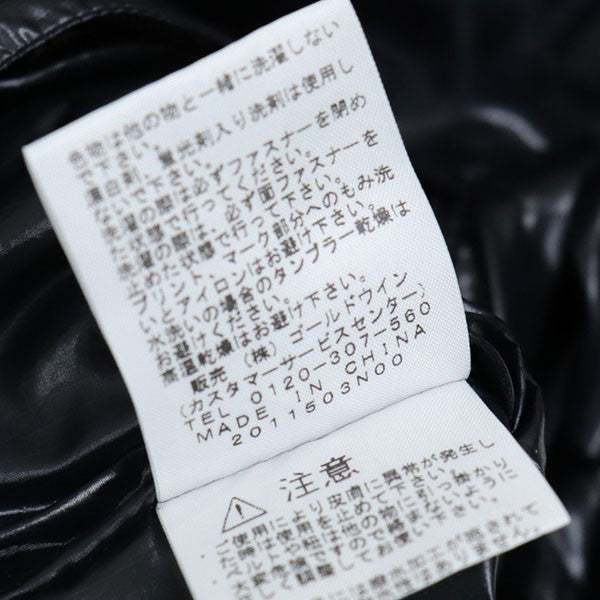 色物は他の物と一緒に洗濯しない
で下さい。
漂白剤、蛍光剤入り洗剤は使用し
ないで下さい。
洗濯の際は必ずファスナーを閉め
た状態で行ってください。
洗濯の際は、必ず面ファスナーを
止めた状態で行って下さい。
プリント、マーク部分へのもみ洗
いとアイロンはお避け下さい。
水洗いの場合のタンブラー乾燥は
お避けください。
高温乾燥はお避け下さい。
販売 (株) ゴールドウイン
(カスタマーサービスセンター)
TEL 0120-307-560
MADE IN CHINA
2011503N00
注意
ご使用により皮膚に異常が発生し
た時は使用を止めて下さい。
ベルトや紐は他の物に引っ掛かり